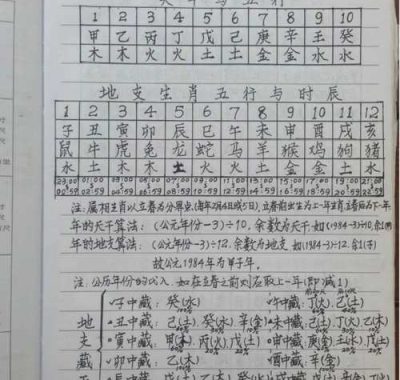 天干与五行
1 2 3 4 5 6 7 8 9 10
甲 乙 丙 丁 戊 己 庚 辛 壬 癸
木 木 火 火 土 土 金 金 水 水
地支生肖五行与时辰
1 2 3 4 5 6 7 8 9 10 11 12
子 丑 寅 卯 辰 巳 午 未 申 酉 戌 亥
鼠 牛 虎 兔 龙 蛇 马 羊 猴 鸡 狗 猪
水 土 木 木 土 火 火 土 金 金 土 水
23:00 01:00 03:00 05:00 07:00 09:00 11:00 13:00 15:00 17:00 19:00 21:00
00:59 02:59 04:59 06:59 08:59 10:59 12:59 14:59 16:59 18:59 20:59 22:59
注:属相生肖以立春为分界点(每年2月4日或5日),立春前出生为上一年生肖,立春后为下一年
年的天干算法:(公元年份-3)÷10,余数为天干,如(1984-3)÷10,余1(甲)
年的地支算法:(公元年份-3)÷12,余数为地支,如(1984-3)÷12,余1(子)
故公元1984年为甲子年。
注:公历年份的代入,如在立春之前则应取上一年(即减1)
子中藏:癸(水) 午中藏:丁(火)己(土)
地 丑中藏:己(土)癸(水)辛(金) 未中藏:己(土)丁(火)乙(木)
支 寅中藏:甲(木)丙(火)戊(土) 申中藏:庚(金)壬(水)戊(土)
藏 卯中藏:乙(木) 酉中藏:辛(金)